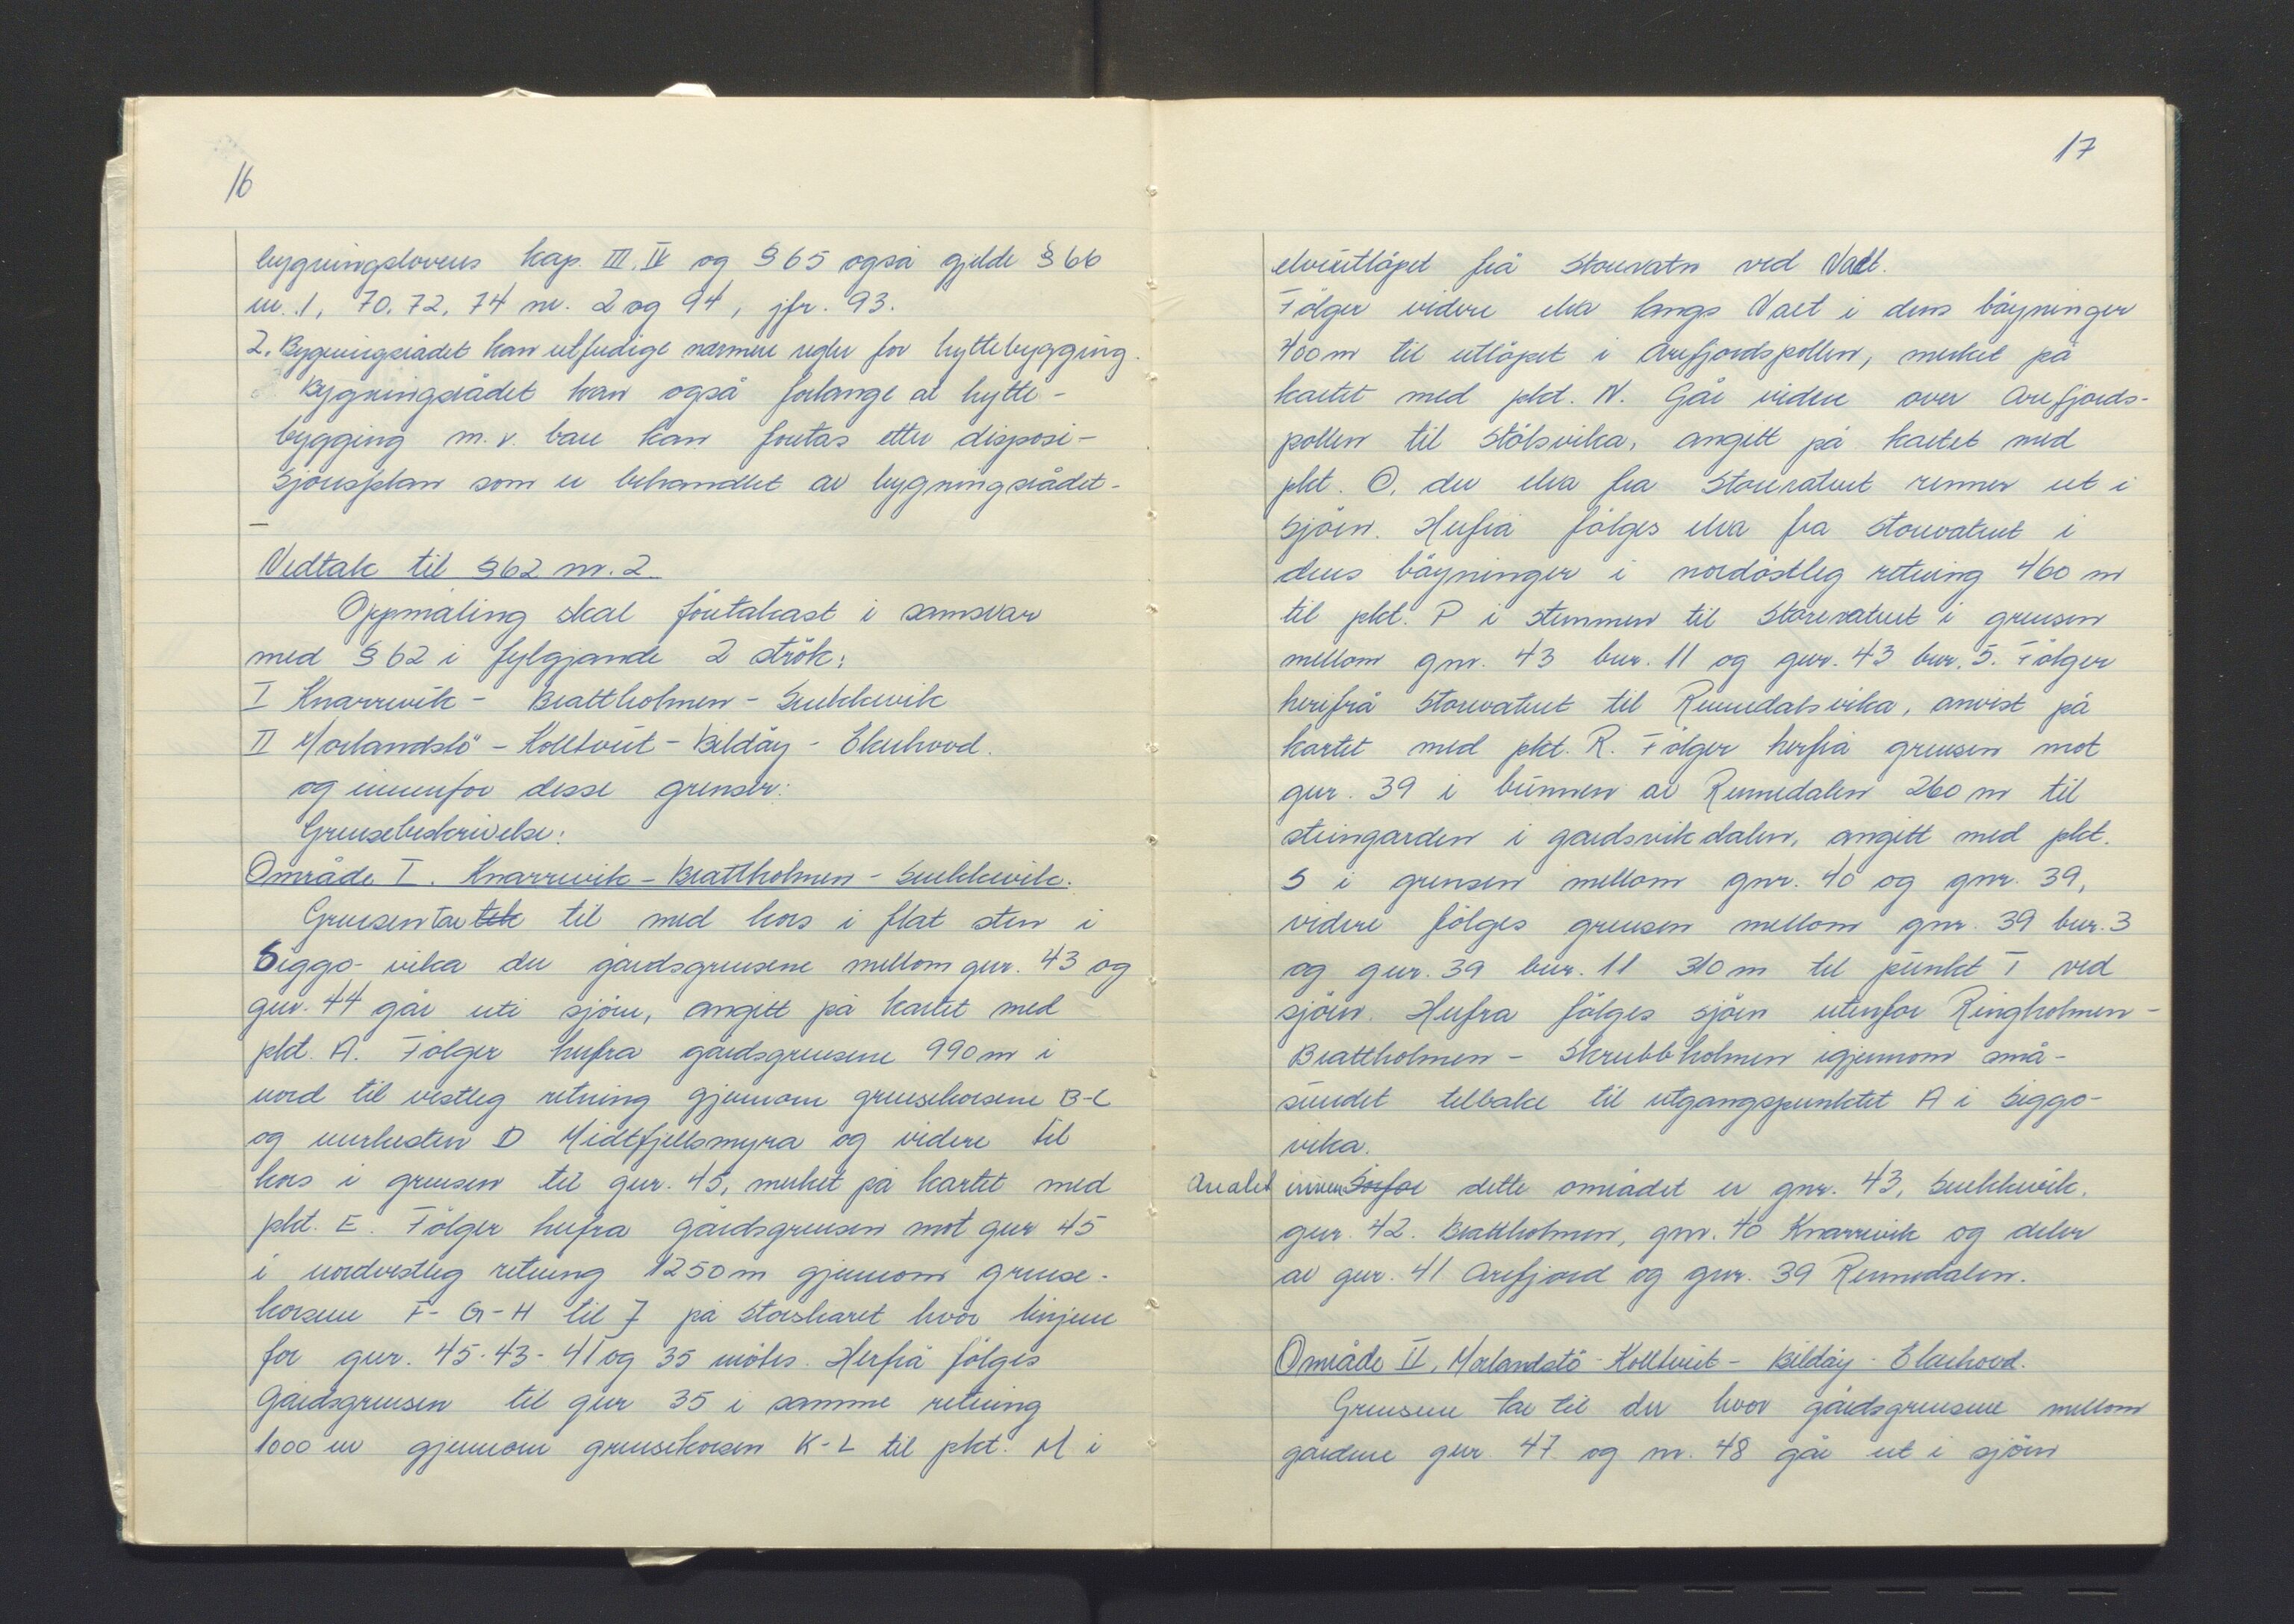 16
bygningslovens kap. III, IV og § 65 også gjelde § 66
nr. 1, 70, 72, 74 nr. 2 og 94, jfr. 93.
2. Bygningsrådet kan utferdige nærmere regler for hyttebygging.
Bygningsrådet kan også forlange at hytte-
bygging m.v. bare kan foretas etter disposi-
sjonsplan som er behandlet av bygningsrådet-
Vedtak til § 62 nr. 2.
Oppmåling skalföretakast i samsvar
med § 62 i fylgjande 2 strök:
I Knarrevik - Brattholmen - Snekkevik
II Morlandstö - Kolltveit - Bildöy - Ekerhovd.
og innenfor desse grenser:
Grensebeskrivelse:
Område I. Knarrevik - Brattholmen - Snekkevik.
Grensen tar tek til med kors i flat sten i
Siggo- vika der gårdsgrensene mellom gnr. 43 og
gnr. 44 går uti sjöen, angitt på kartet med
pkt. A. Fölger herfra gårdsgrensene 990 m i
nord til vestleg retning gjennom grensekorsene B-C
og merkesten D Midtfjellsmyra og videre til
kors i grensen til gnr. 45, merket på kartet med
pkt. E. Fölger herfra gårdsgrensen mot gnr 45
i nordvestleg retning 1250 m gjennom grense-
korsene F - G - H til J på Storskaret hvor linjene
for gnr. 45 - 43 - 41 og 35 mötes. Herfrå fölges
Gårdsgrensen til gnr 35 i samme retning
1000 m gjennom grensekorsen K - L til pkt. M i
17
elveutlöpet frå Storevatn ved Valt.
Fölger videre elva langs Valt i dens böyninger
400 m til utlöpet i Arefjordspollen, merket på
kartet med pkt. N. Går videre over Arefjords-
pollen til Stölsvika, angitt på kartet med
pkt. O, der elva fra Storevatnet renner ut i
sjöen. Herfrå fölges elva fra Storevatnet i
dens böyninger i nordöstleg retning 460 m
til pkt. P i stemmen til Storevatnet i grensen
mellom gnr. 43 bnr. 11 og gnr. 43 bnr. 5. Fölger
herifrå Storevatnet til Remedalsvika, anvist på
kartet med pkt. R. Fölger herfrå grensen mot
gnr. 39 i bunnen av Remedalen 260 m til
steingarden i gardsvikdalen, angitt med pkt.
S i grensen mellom gnr. 40 og gnr. 39,
videre fölges grensen mellom gnr. 39 bnr. 3
og gnr. 39 bnr. 11 310 m til punkt T ved
sjöen. Herfra fölges sjöen utenfor Ringholmen -
Brattholmen - Skrubbholmen igjennom små-
sundet tilbake til utgangspunktet A i Siggo-
vika.
Arealet innenfor dette området er gnr. 43, Snekkevik,
gnr. 42. Brattholmen, gnr. 40 Knarrevik og deler
av gnr. 41 Arefjord og gnr. 39 Remedalen.
Område II, Morlandstö - Kolltveit - Bildöy - Ekerhovd.
Grensene tar til der hvor gårdsgrensene mellom
gårdene gnr. 47 og nr. 48 går ut i sjöen